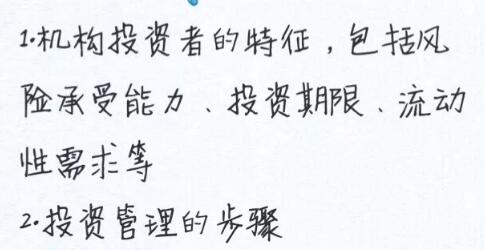 1.机构投资者的特征,包括风
险承受能力、投资期限、流动
性需求等
2.投资管理的步骤